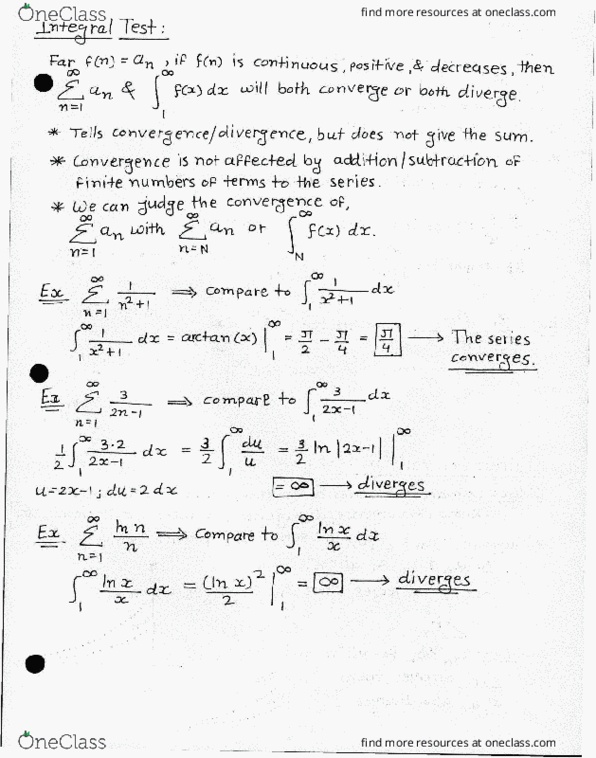 OneClass
find more resources at oneclass.com
Integral Test:
For f(n) = aₙ, if f(n) is continuous, positive, & decreases, then
∑_{n=1}^{∞} aₙ & ∫_1^∞ f(x) dx will both converge or both diverge.
* Tells convergence/divergence, but does not give the sum.
* Convergence is not affected by addition/subtraction of
finite numbers of terms to the series.
* We can judge the convergence of,
∑_{n=1}^{∞} aₙ with ∑_{n=N}^{∞} aₙ or ∫_N^∞ f(x) dx.
Ex ∑_{n=1}^{∞} 1/(n²+1) ⟹ compare to ∫_1^∞ 1/(x²+1) dx
∫_1^∞ 1/(x²+1) dx = arctan(x) |_1^∞ = π/2 - π/4 = π/4 → The series
converges.
Ex ∑_{n=1}^{∞} 3/(2n-1) ⟹ compare to ∫_1^∞ 3/(2x-1) dx
1/2 ∫_1^∞ 3·2/(2x-1) dx = 3/2 ∫_1^∞ du/u = 3/2 ln |2x-1| |_1^∞
u=2x-1; du=2 dx = ∞ → diverges
Ex. ∑_{n=1}^{∞} ln n/n ⟹ Compare to ∫_1^∞ ln x/x dx
∫_1^∞ ln x/x dx = (ln x)²/2 |_1^∞ = ∞ → diverges
OneClass
find more resources at oneclass.com